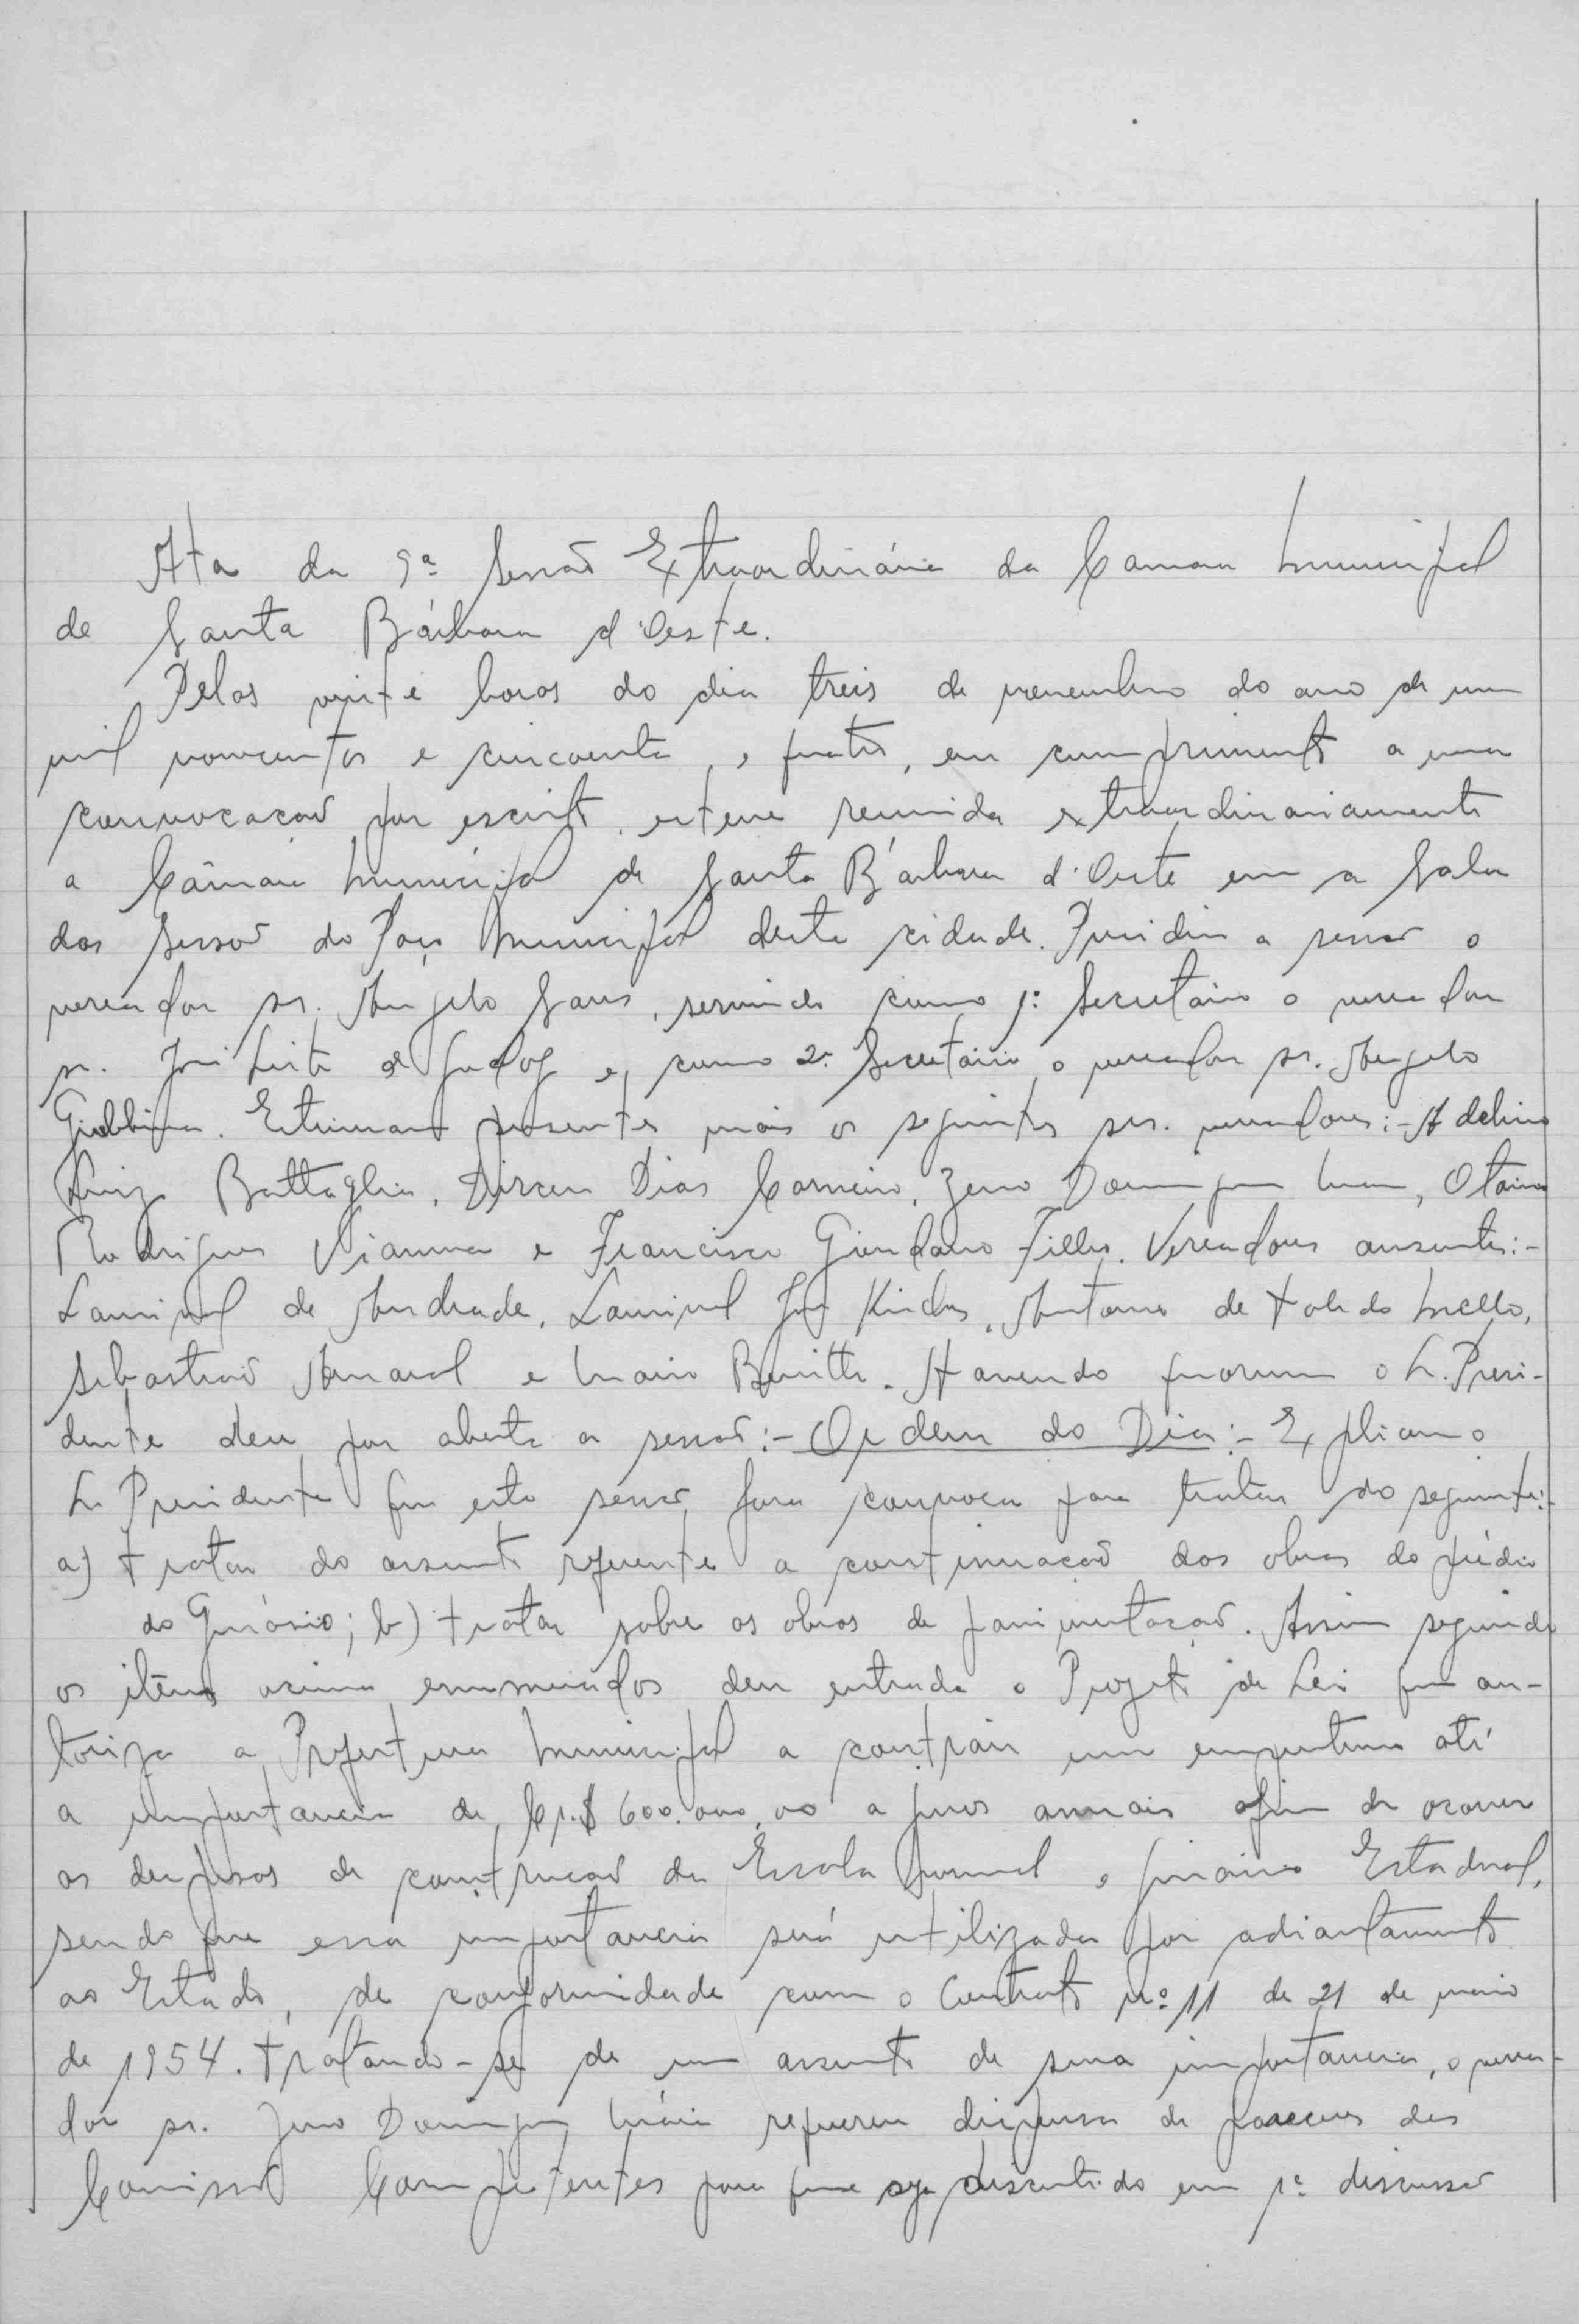 Ata da 9ª Sessão Extraordinária da Camara Municipal
de Santa Bárbara d'Oeste.
Pelas vinte horas do dia treis de novembro do ano de um
mil novecentos e cincoenta e quatro, em cumprimento a uma
convocação por escrito, esteve reunida extraordinariamente
a Câmara Municipal de Santa Bárbara d'Oeste em a Sala
das Sessão do Paço Municipal desta cidade. Presidiu a sessão o
vereador sr. Angelo Sans, servindo como 1º Secretário o vereador
sr. José Leite de Godoy e, como 2º Secretário o vereador sr. Angelo
Giubbina. Estiveram presentes mais os seguintes srs. vereadores:- Adelino
Luiz Battaglia, Dirceu Dias Carneiro, Zeno Domingues Maia, Otavio
Rodrigues Vianna e Francisco Giordano Filho. Vereadores ausentes:-
Laurival de Andrade, Laurival José, Antonio de Toledo Mello,
Sebastião Amaral e Mario Benitto. Havendo quorum o Sr. Presi-
dente deu por aberta a sessão:- Ordem do Dia:- Explicou o
Sr. Presidente que esta sessão fora convoca para tratar do seguinte:-
a) tratar do assunto referente a continuação das obras do prédio
do Ginásio; b) tratar sobre as obras de pavimentação. Assim seguindo
os itêns acima enumerados deu entrada o Projeto de Lei que au-
toriza a Prefeitura Municipal a contrair um emprestimo até
a importancia de Cr.$ 600.000,00 a juros anuais afim de ocorrer
as despesas de construção da Escola Normal e ginásio Estadual,
sendo que essa importancia será utilizada por adiantamento
ao Estado, de conformidade com o Contrato nº 11 de 21 de maio
de 1954. Tratando-se de um assunto de suma importancia, o verea-
dor sr. Zeno Domingues Maia requereu dispensa de pareceres das
Comissão Competentes para que seja discutido em 1ª discussão